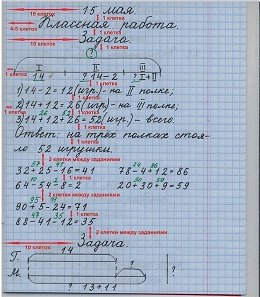 10 клеток 15 мая.
1 клетка
4-5 клеток Классная работа.
1 клетка
10 клеток Задача.
1 клетка
?
I II III
1 клетка 14 ? 14-2 ? I+II
1 клетка
1) 14-2=12 (игр.)-на II полке;
2) 14+12=26 (игр)-на III полке;
3) 14+12+26=52 (игр.)-всего.
Ответ: на трёх полках стоя-
ло 52 игрушки.
2 клетки между заданиями
57 41 74 86
32+25-16=41 78-4+12=86
1 клетка
10 2
64-54-8=2 20+30+9=59
2 клетки между заданиями
95 71
90+5-24=71
1 клетка
47 35
88-41-12=35
2 клетки между заданиями
10 клеток Задача.
14 1 клетка
П.
М. ?
? 13+11